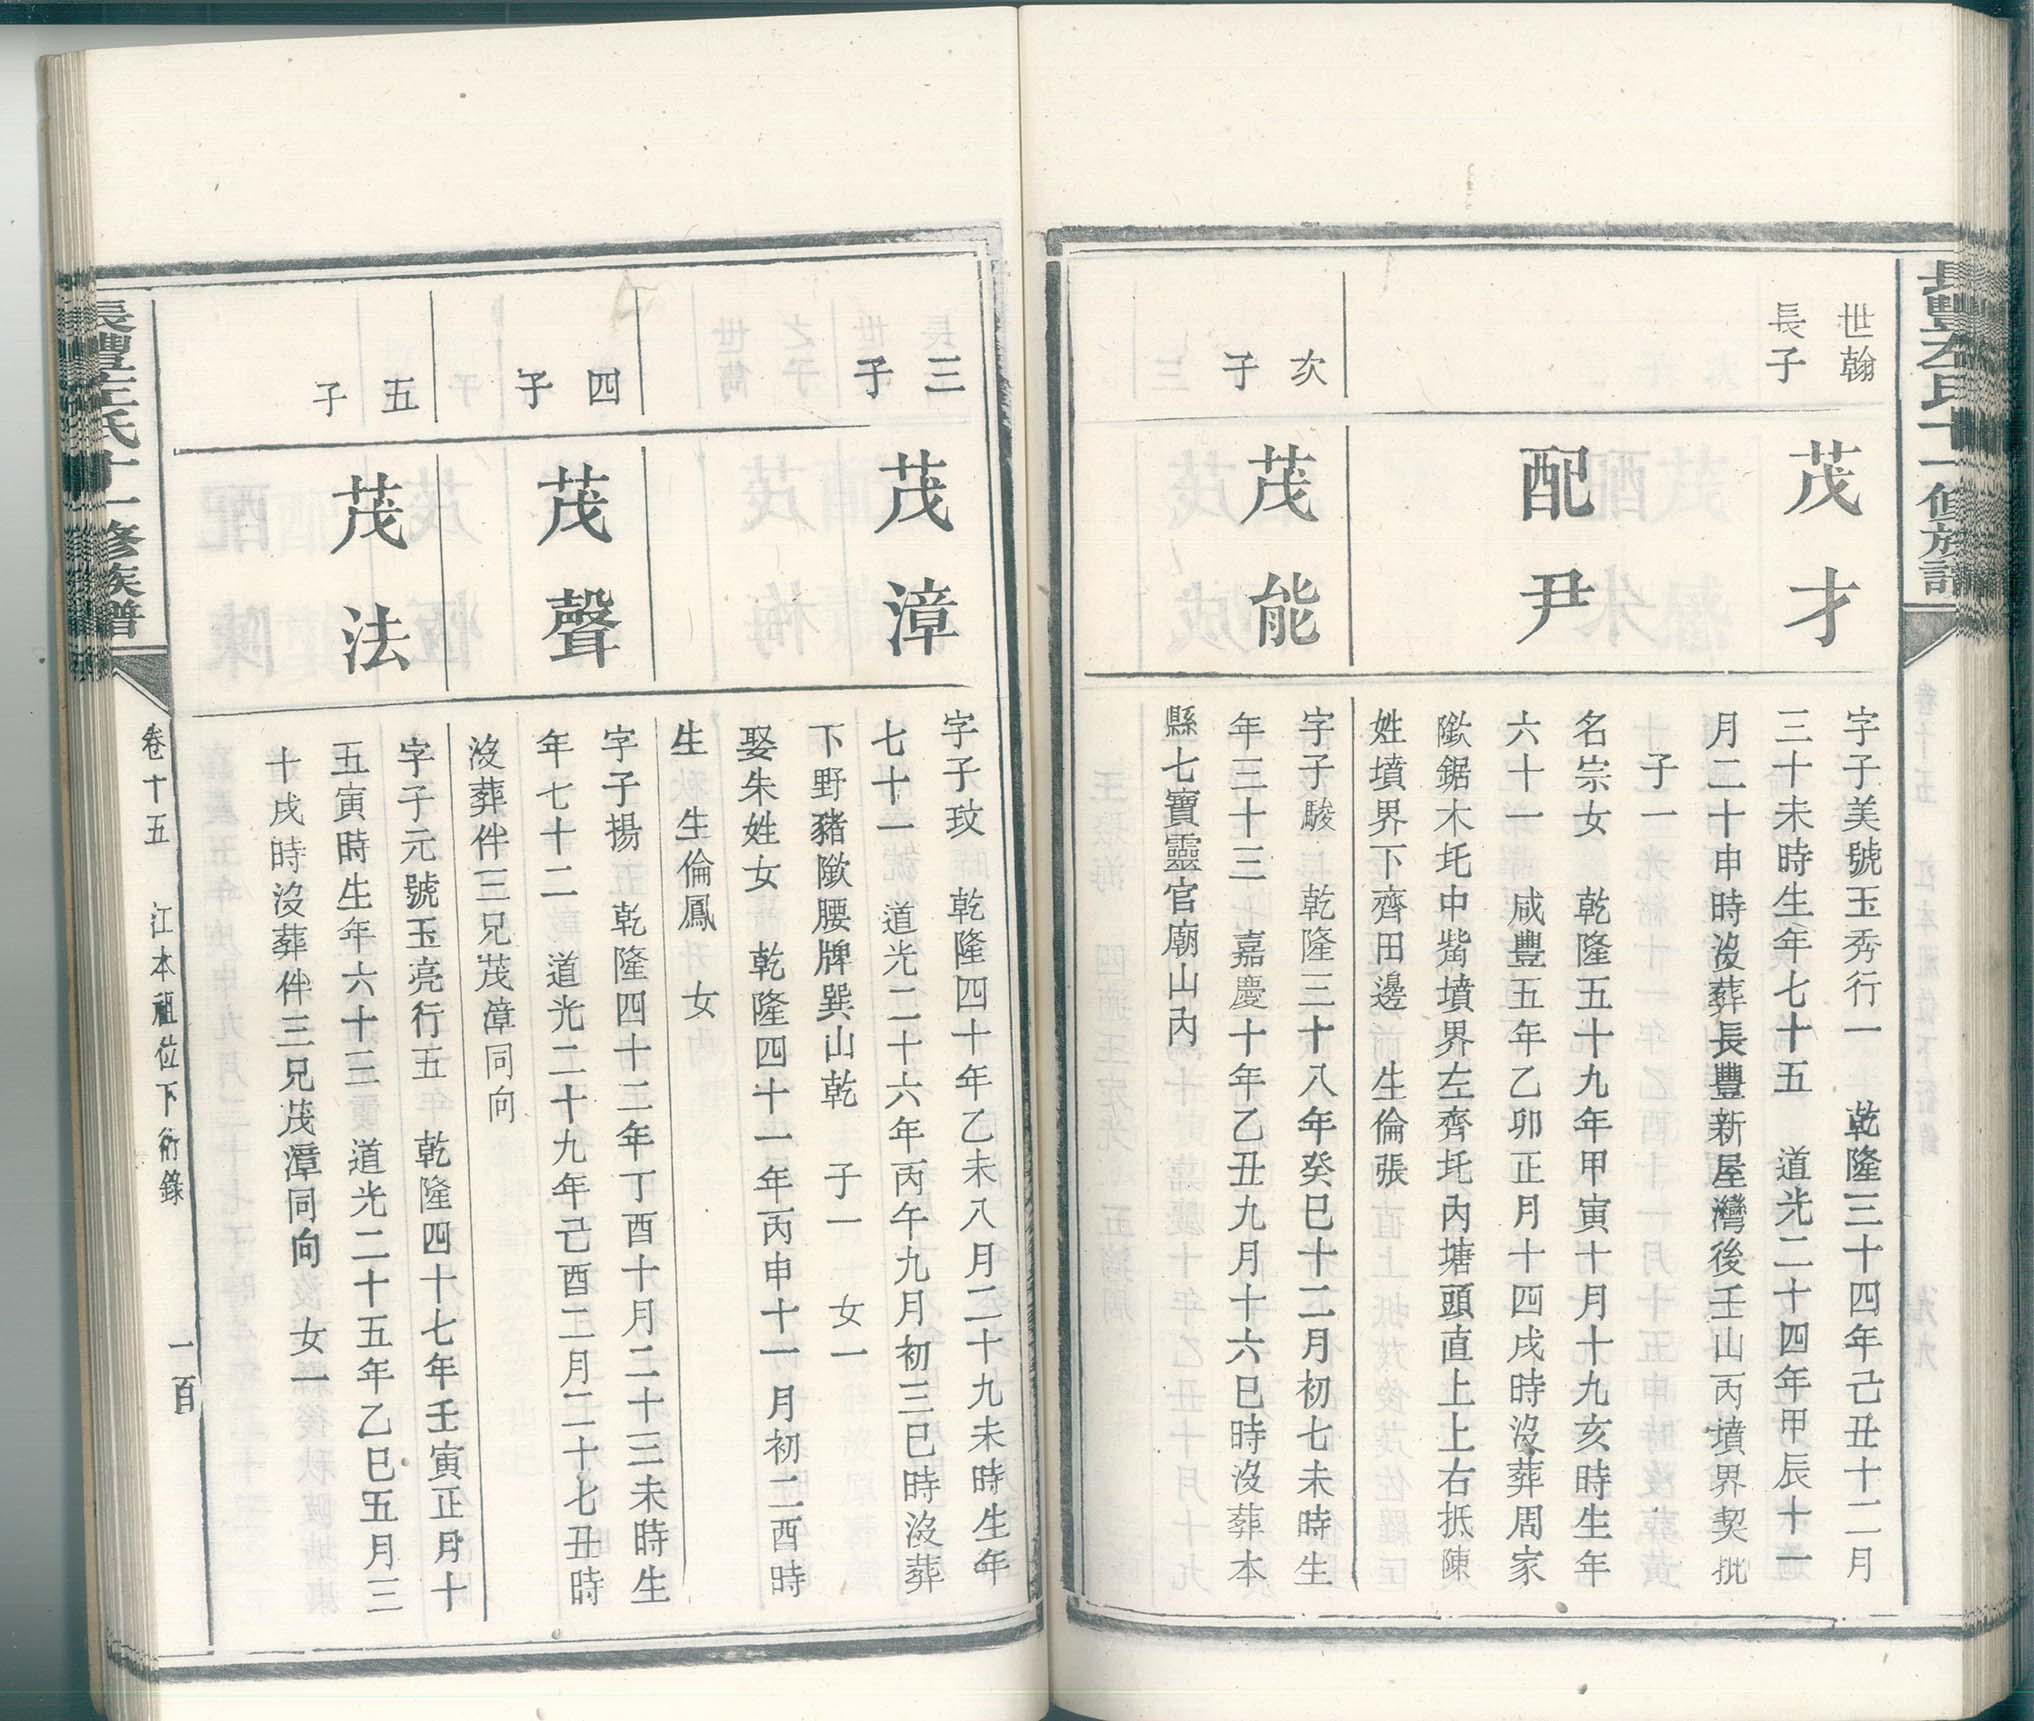 長豐左氏十一修族譜
世翰
長子
茂才
字子美號玉秀行一　乾隆三十四年己丑十二月
三十未時生年七十五　道光二十四年甲辰十一
月二十申時沒葬長豐新屋灣後壬山丙墳界契批
子一
配尹
名宗女　乾隆五十九年甲寅十月十九亥時生年
六十一　咸豐五年乙卯正月十四戌時沒葬周家
隞鋸木圫中嵴墳界左齊圫內塘頭直上上右抵陳
姓墳界下齊田邊　生倫張
次子
茂能
字子駿　乾隆三十八年癸巳十二月初七未時生
年三十三　嘉慶十年乙丑九月十六巳時沒葬本
縣七寶靈官廟山內
三子
茂漳
字子玟　乾隆四十年乙未八月二十九未時生年
七十一　道光二十六年丙午九月初三巳時沒葬
下野豬隞腰牌巽山乾　子一　女一
娶朱姓女　乾隆四十一年丙申十一月初二酉時
生　生倫鳳　女
四子
茂聲
字子揚　乾隆四十二年丁酉十月二十三未時生
年七十二　道光二十九年己酉二月二十七丑時
沒葬伴三兄茂漳同向
五子
茂法
字子元號玉亮行五　乾隆四十七年壬寅正月十
五寅時生年六十三　道光二十五年乙巳五月三
十戌時沒葬伴三兄茂漳同向　女一
長豐左氏十一修族譜
卷十五　江本祖位下衍錄　一百